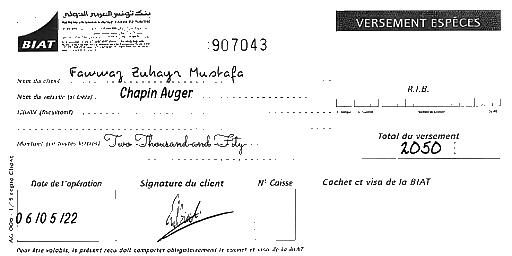 بنك تونس العربي الدولي
BIAT
VERSEMENT ESPÈCES
907043
Nom du client Fawwaz Zuhayr Mustafa
Nom du remettant (si tiers) Chapin Auger
R.I.B.
Libellé (facultatif)
Montant (en toutes lettres) Two Thousand and Fifty
Total du versement
2050
Date de l'opération
Signature du client
N° Caisse
Cachet et visa de la BIAT
06/05/22
Pour être valable, le présent reçu doit comporter obligatoirement le cachet et visa de la BIAT